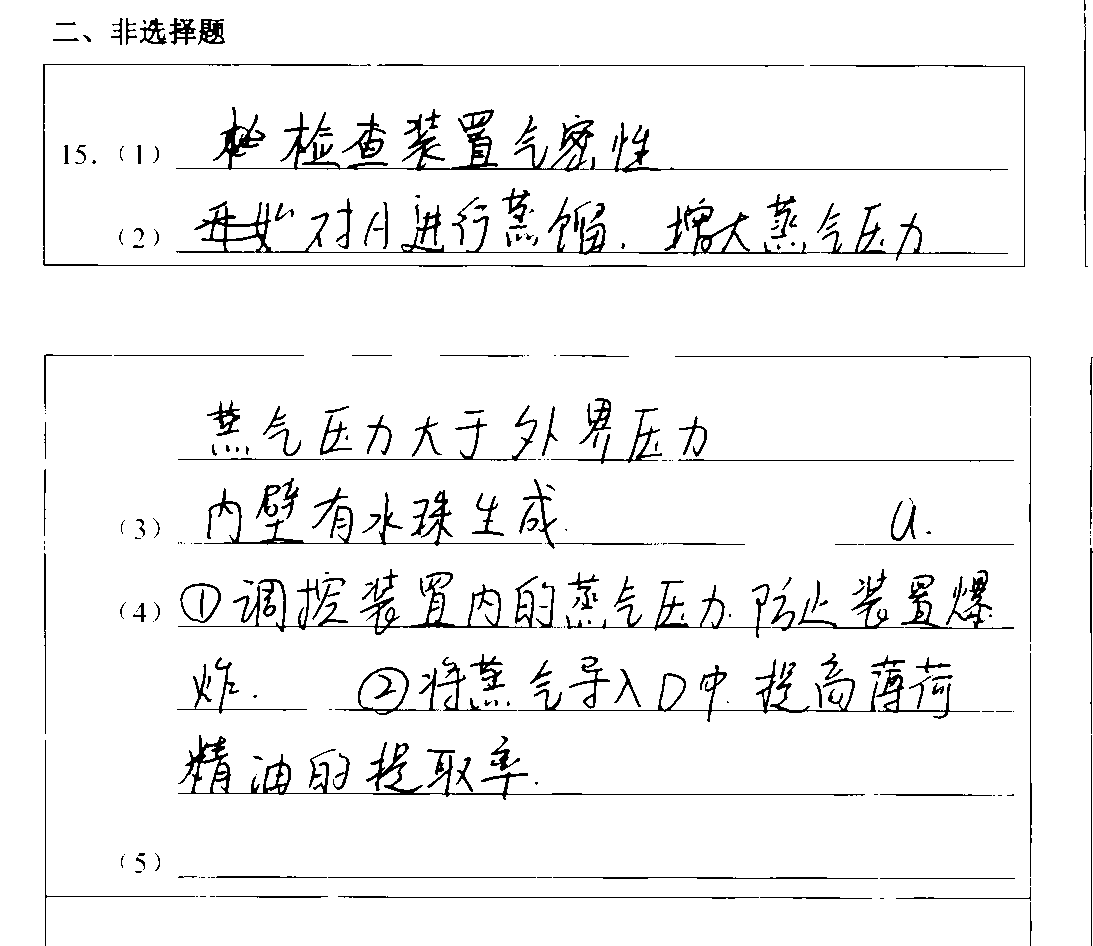 二、非选择题
15.（1）检查装置气密性.
（2）对A进行蒸馏. 增大蒸气压力
蒸气压力大于外界压力
（3）内壁有水珠生成. a.
（4）①调控装置内的蒸气压力. 防止装置爆
炸. ②将蒸气导入D中. 提高薄荷
精油的提取率.
（5）